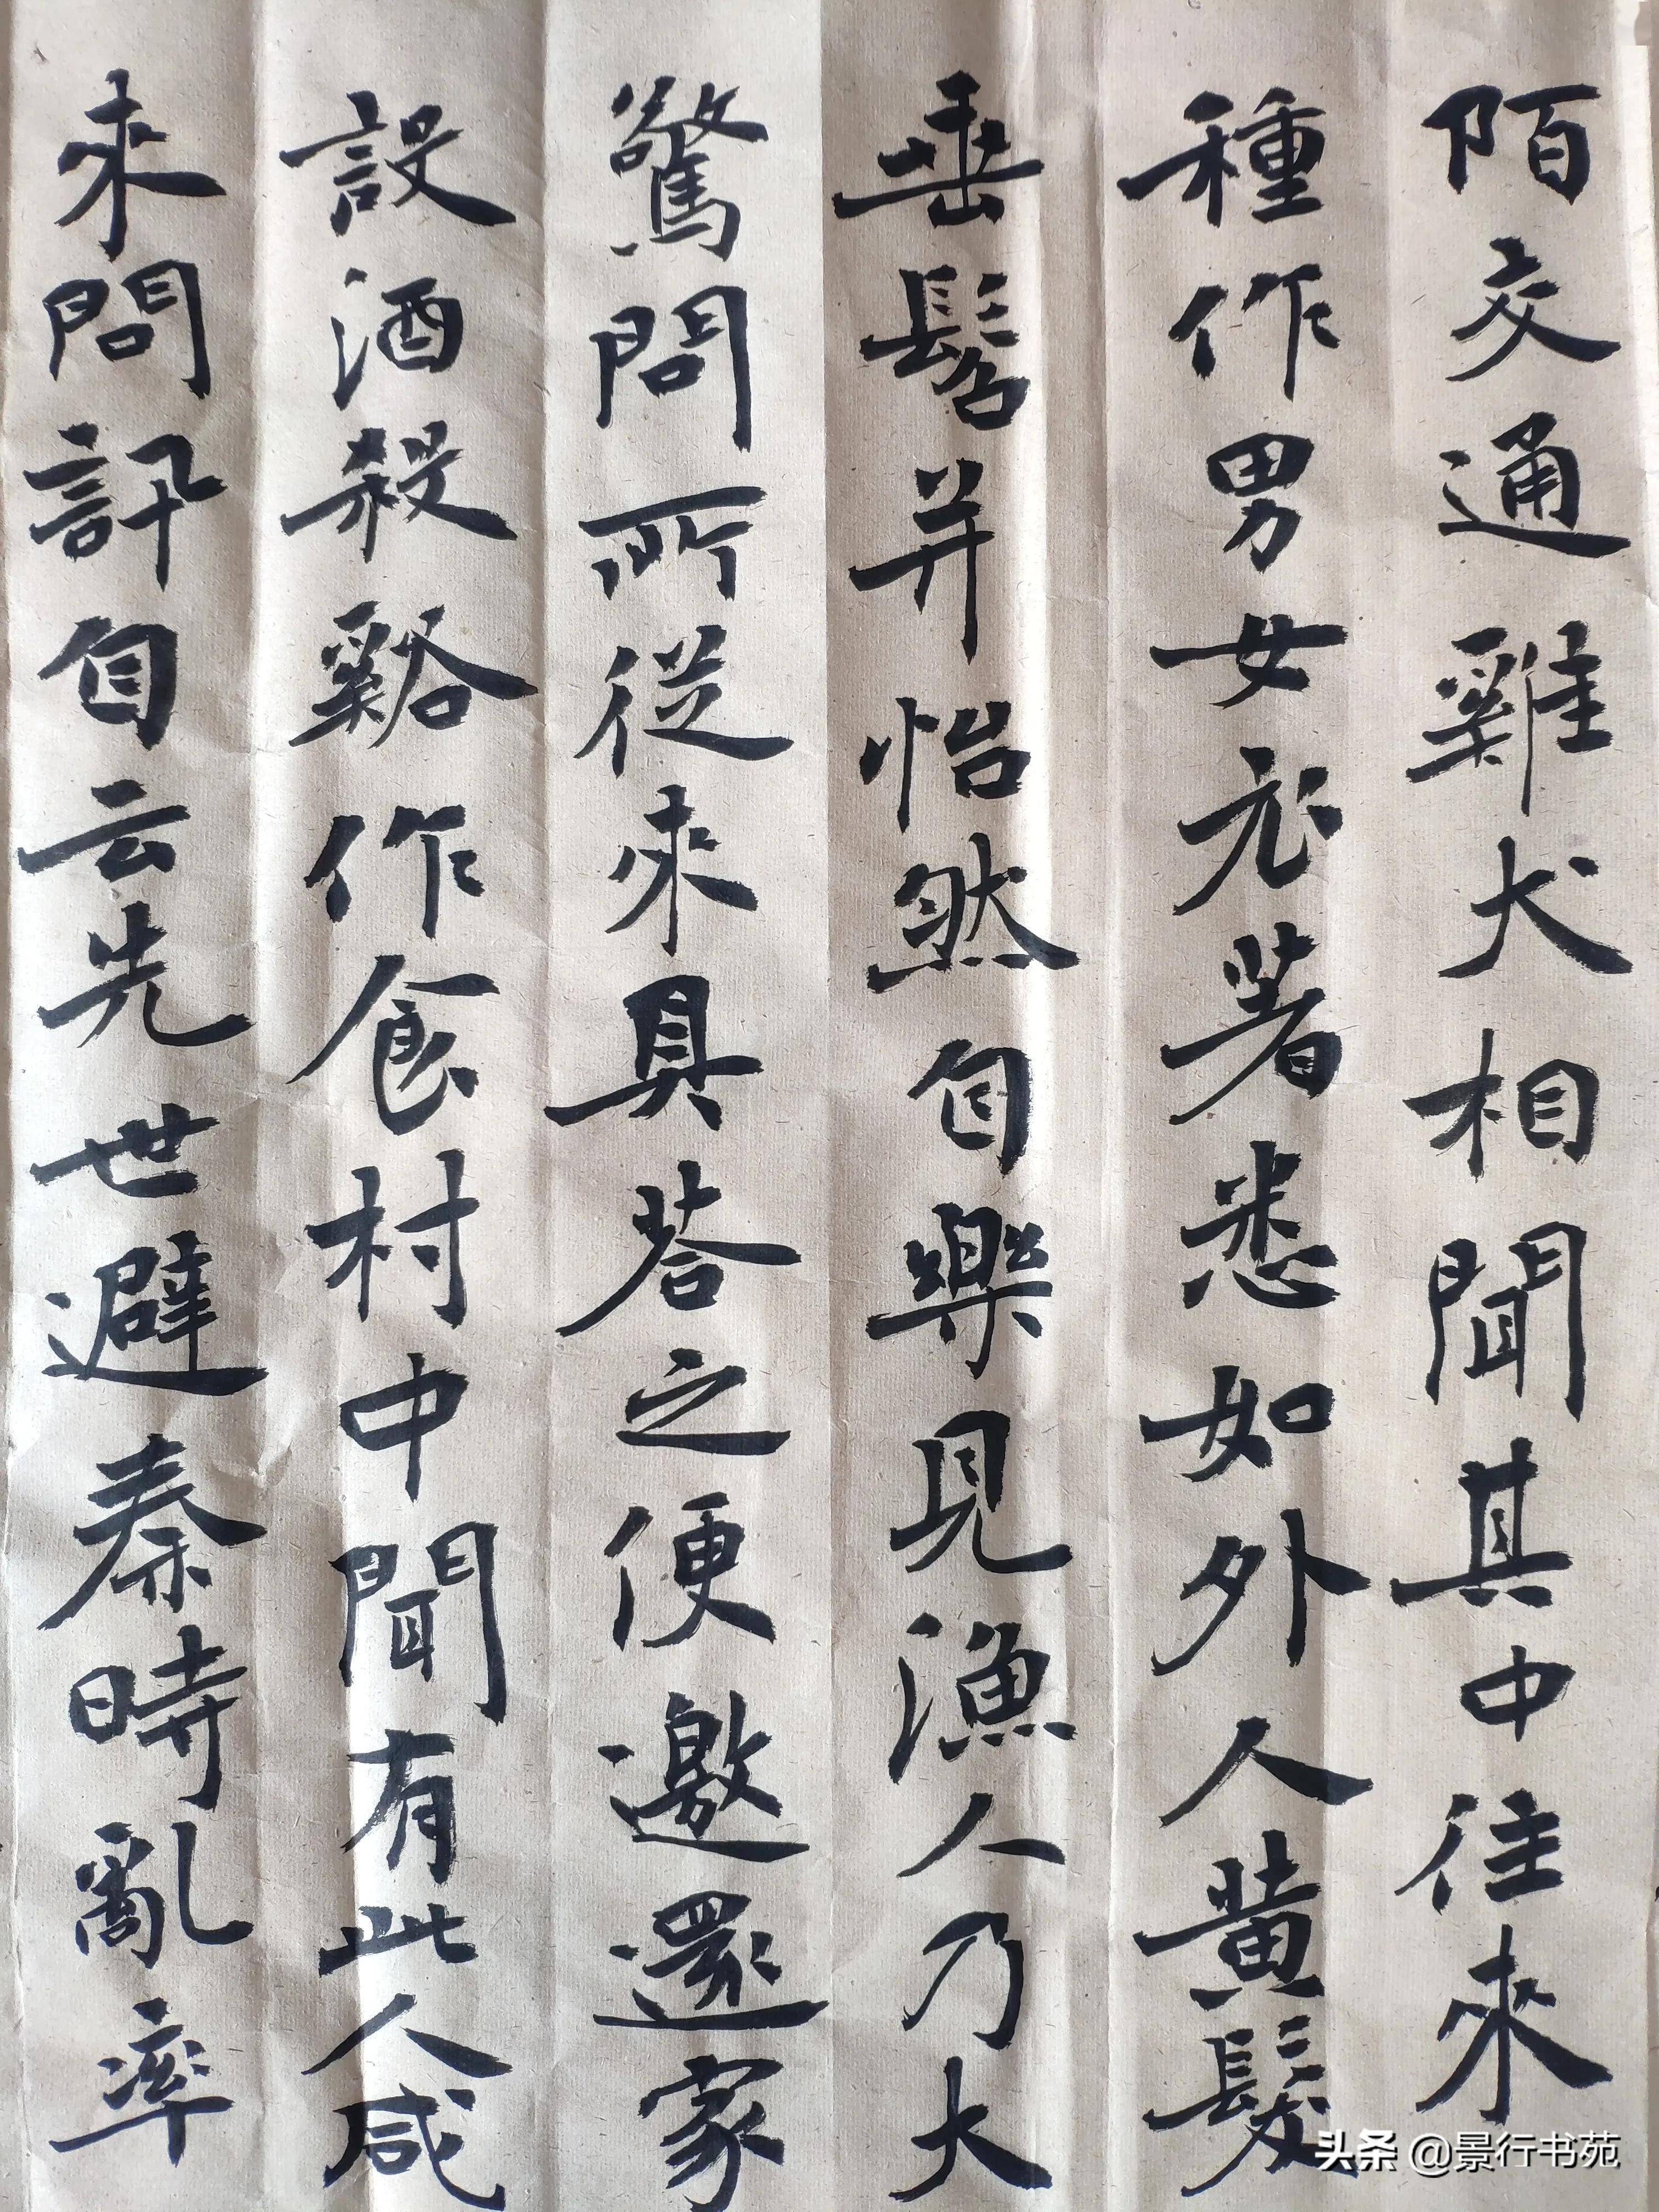 陌交通雞犬相聞其中往來
種作男女衣著悉如外人黃髮
垂髫并怡然自樂見漁人乃大
驚問所從來具荅之便邀還家
設酒殺雞作食村中聞有此人咸
來問訊自云先世避秦時亂率
头条 @景行书苑